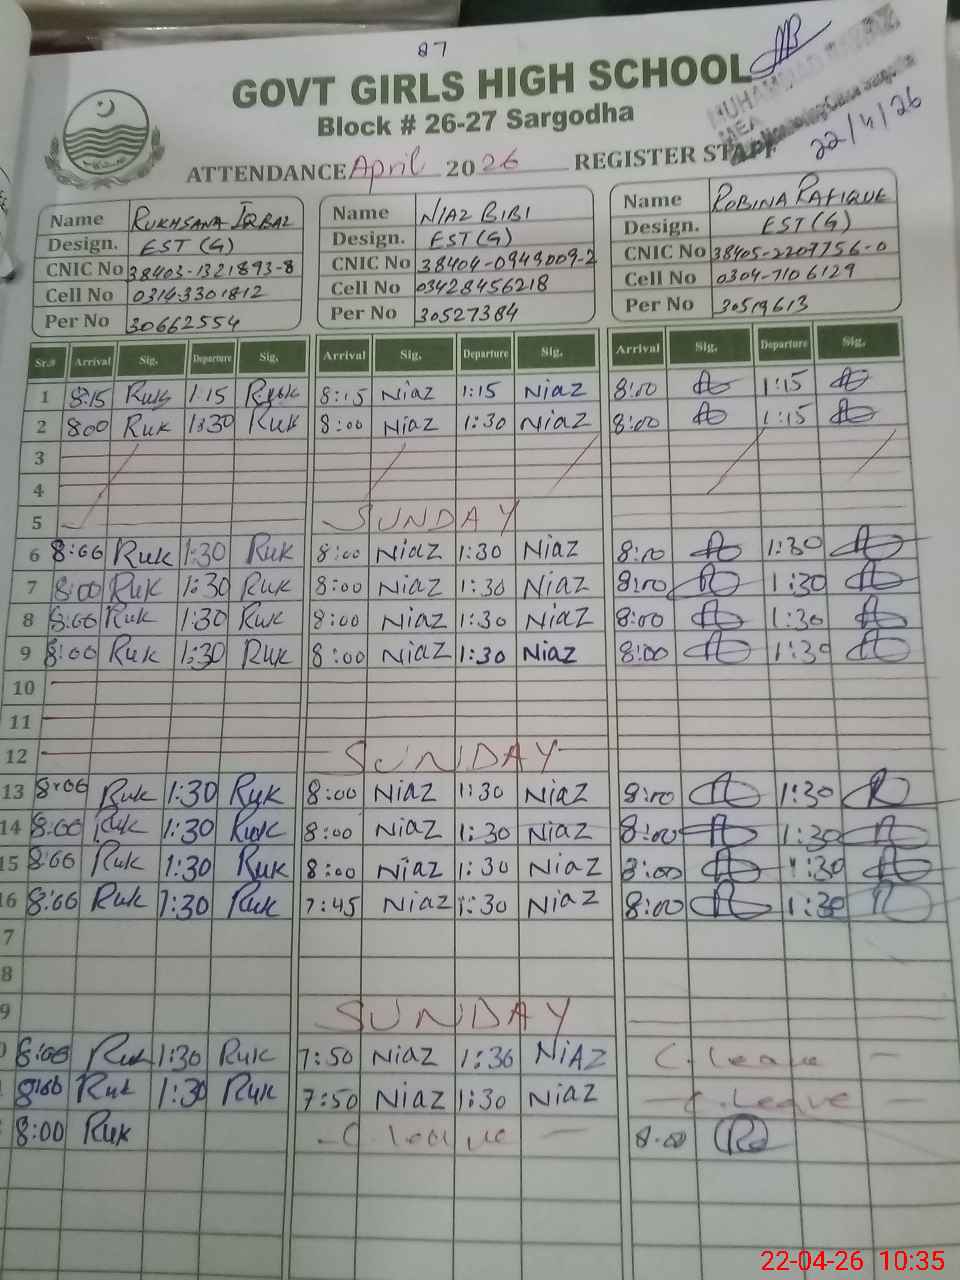 87
GOVT GIRLS HIGH SCHOOL
Block # 26-27 Sargodha
MUHAMMAD
MEA
22/4/26
ATTENDANCE April 2026 REGISTER STAFF
Name RUKHSANA IQBAL Name NIAZ BIBI Name ROBINA RAFIQUE
Design. EST (G) Design. EST (G) Design. EST (G)
CNIC No 38403-1321893-8 CNIC No 38404-0949009-2 CNIC No 38405-2207756-0
Cell No 03143301812 Cell No 03428456218 Cell No 0304-7106129
Per No 30662554 Per No 30527384 Per No 30519613
Sr.# Arrival Sig. Departure Sig. Arrival Sig. Departure Sig. Arrival Sig. Departure Sig.
1 8:15 Ruk 1:15 Ruk 8:15 Niaz 1:15 Niaz 8:00 1:15
2 8:00 Ruk 1:30 Ruk 8:00 Niaz 1:30 Niaz 8:00 1:15
3
4
5 SUNDAY
6 8:00 Ruk 1:30 Ruk 8:00 Niaz 1:30 Niaz 8:00 1:30
7 8:00 Ruk 1:30 Ruk 8:00 Niaz 1:30 Niaz 8:00 1:30
8 8:00 Ruk 1:30 Ruk 8:00 Niaz 1:30 Niaz 8:00 1:30
9 8:00 Ruk 1:30 Ruk 8:00 Niaz 1:30 Niaz 8:00 1:30
10
11
12 SUNDAY
13 8:00 Ruk 1:30 Ruk 8:00 Niaz 1:30 Niaz 8:00 1:30
14 8:00 Ruk 1:30 Ruk 8:00 Niaz 1:30 Niaz 8:00 1:30
15 8:00 Ruk 1:30 Ruk 8:00 Niaz 1:30 Niaz 8:00 1:30
16 8:00 Ruk 1:30 Ruk 7:45 Niaz 1:30 Niaz 8:00 1:30
7
8
9 SUNDAY
8:00 Ruk 1:30 Ruk 7:50 Niaz 1:30 NiAZ C. leave
8:00 Ruk 1:30 Ruk 7:50 Niaz 1:30 Niaz C. Leave
8:00 Ruk C. leave 8:00
22-04-26 10:35